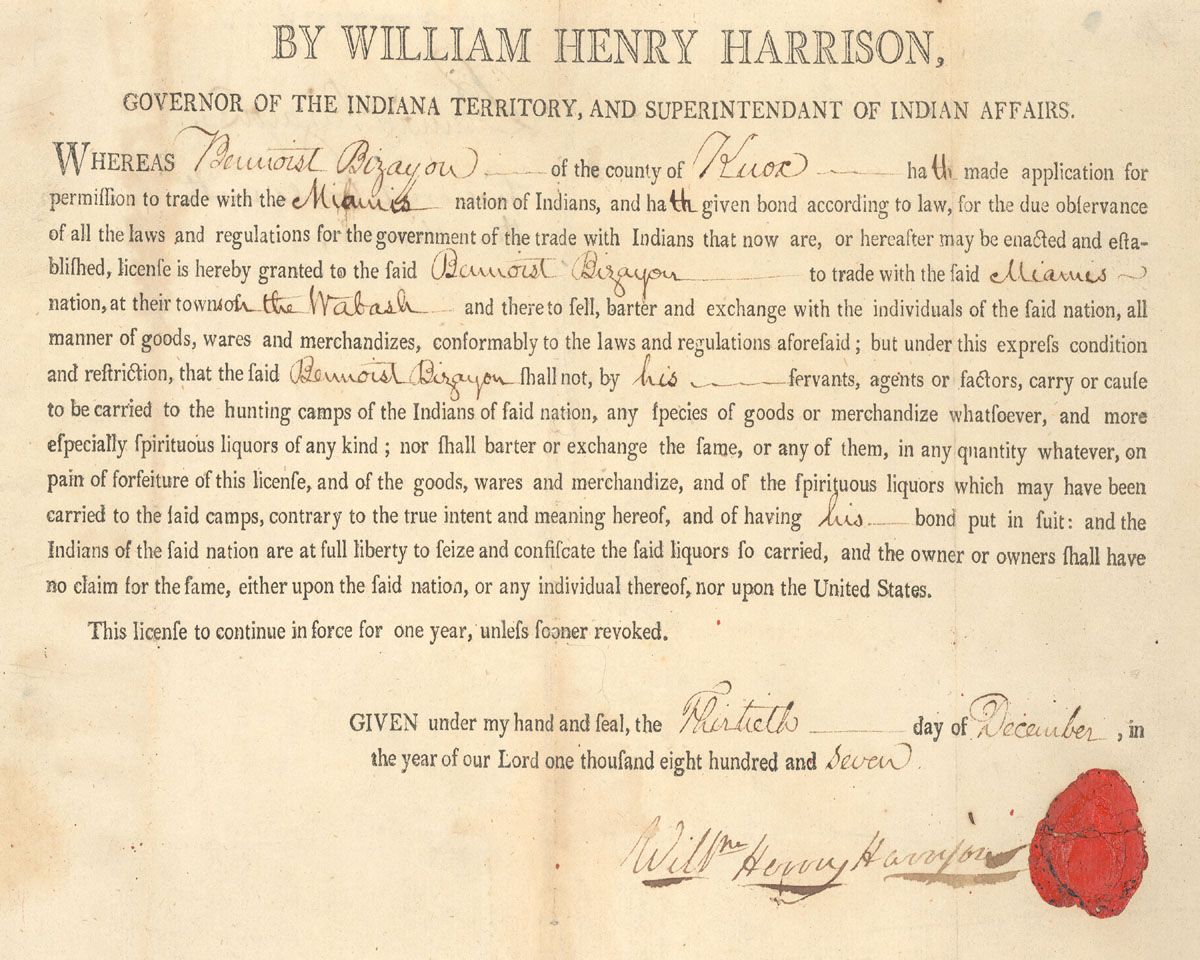 BY WILLIAM HENRY HARRISON,
GOVERNOR OF THE INDIANA TERRITORY, AND SUPERINTENDANT OF INDIAN AFFAIRS.
WHEREAS Bennoist Bizayon of the county of Knox hath made application for
permiſſion to trade with the Miamis nation of Indians, and hath given bond according to law, for the due obſervance
of all the laws and regulations for the government of the trade with Indians that now are, or hereafter may be enacted and eſta-
bliſhed, licenſe is hereby granted to the ſaid Bennoist Bizayon to trade with the ſaid Miamis
nation, at their towns on the Wabash and there to ſell, barter and exchange with the individuals of the ſaid nation, all
manner of goods, wares and merchandizes, conformably to the laws and regulations aforeſaid ; but under this expreſs condition
and reſtriction, that the ſaid Bennoist Bizayon ſhall not, by his ſervants, agents or factors, carry or cauſe
to be carried to the hunting camps of the Indians of ſaid nation, any ſpecies of goods or merchandize whatſoever, and more
eſpecially ſpirituous liquors of any kind ; nor ſhall barter or exchange the ſame, or any of them, in any quantity whatever, on
pain of forfeiture of this licenſe, and of the goods, wares and merchandize, and of the ſpirituous liquors which may have been
carried to the ſaid camps, contrary to the true intent and meaning hereof, and of having his bond put in ſuit: and the
Indians of the ſaid nation are at full liberty to ſeize and confiſcate the ſaid liquors ſo carried, and the owner or owners ſhall have
no claim for the ſame, either upon the ſaid nation, or any individual thereof, nor upon the United States.
This licenſe to continue in force for one year, unleſs ſooner revoked.
GIVEN under my hand and ſeal, the Thirtieth day of December, in
the year of our Lord one thouſand eight hundred and Seven.
Willm Henry Harrison